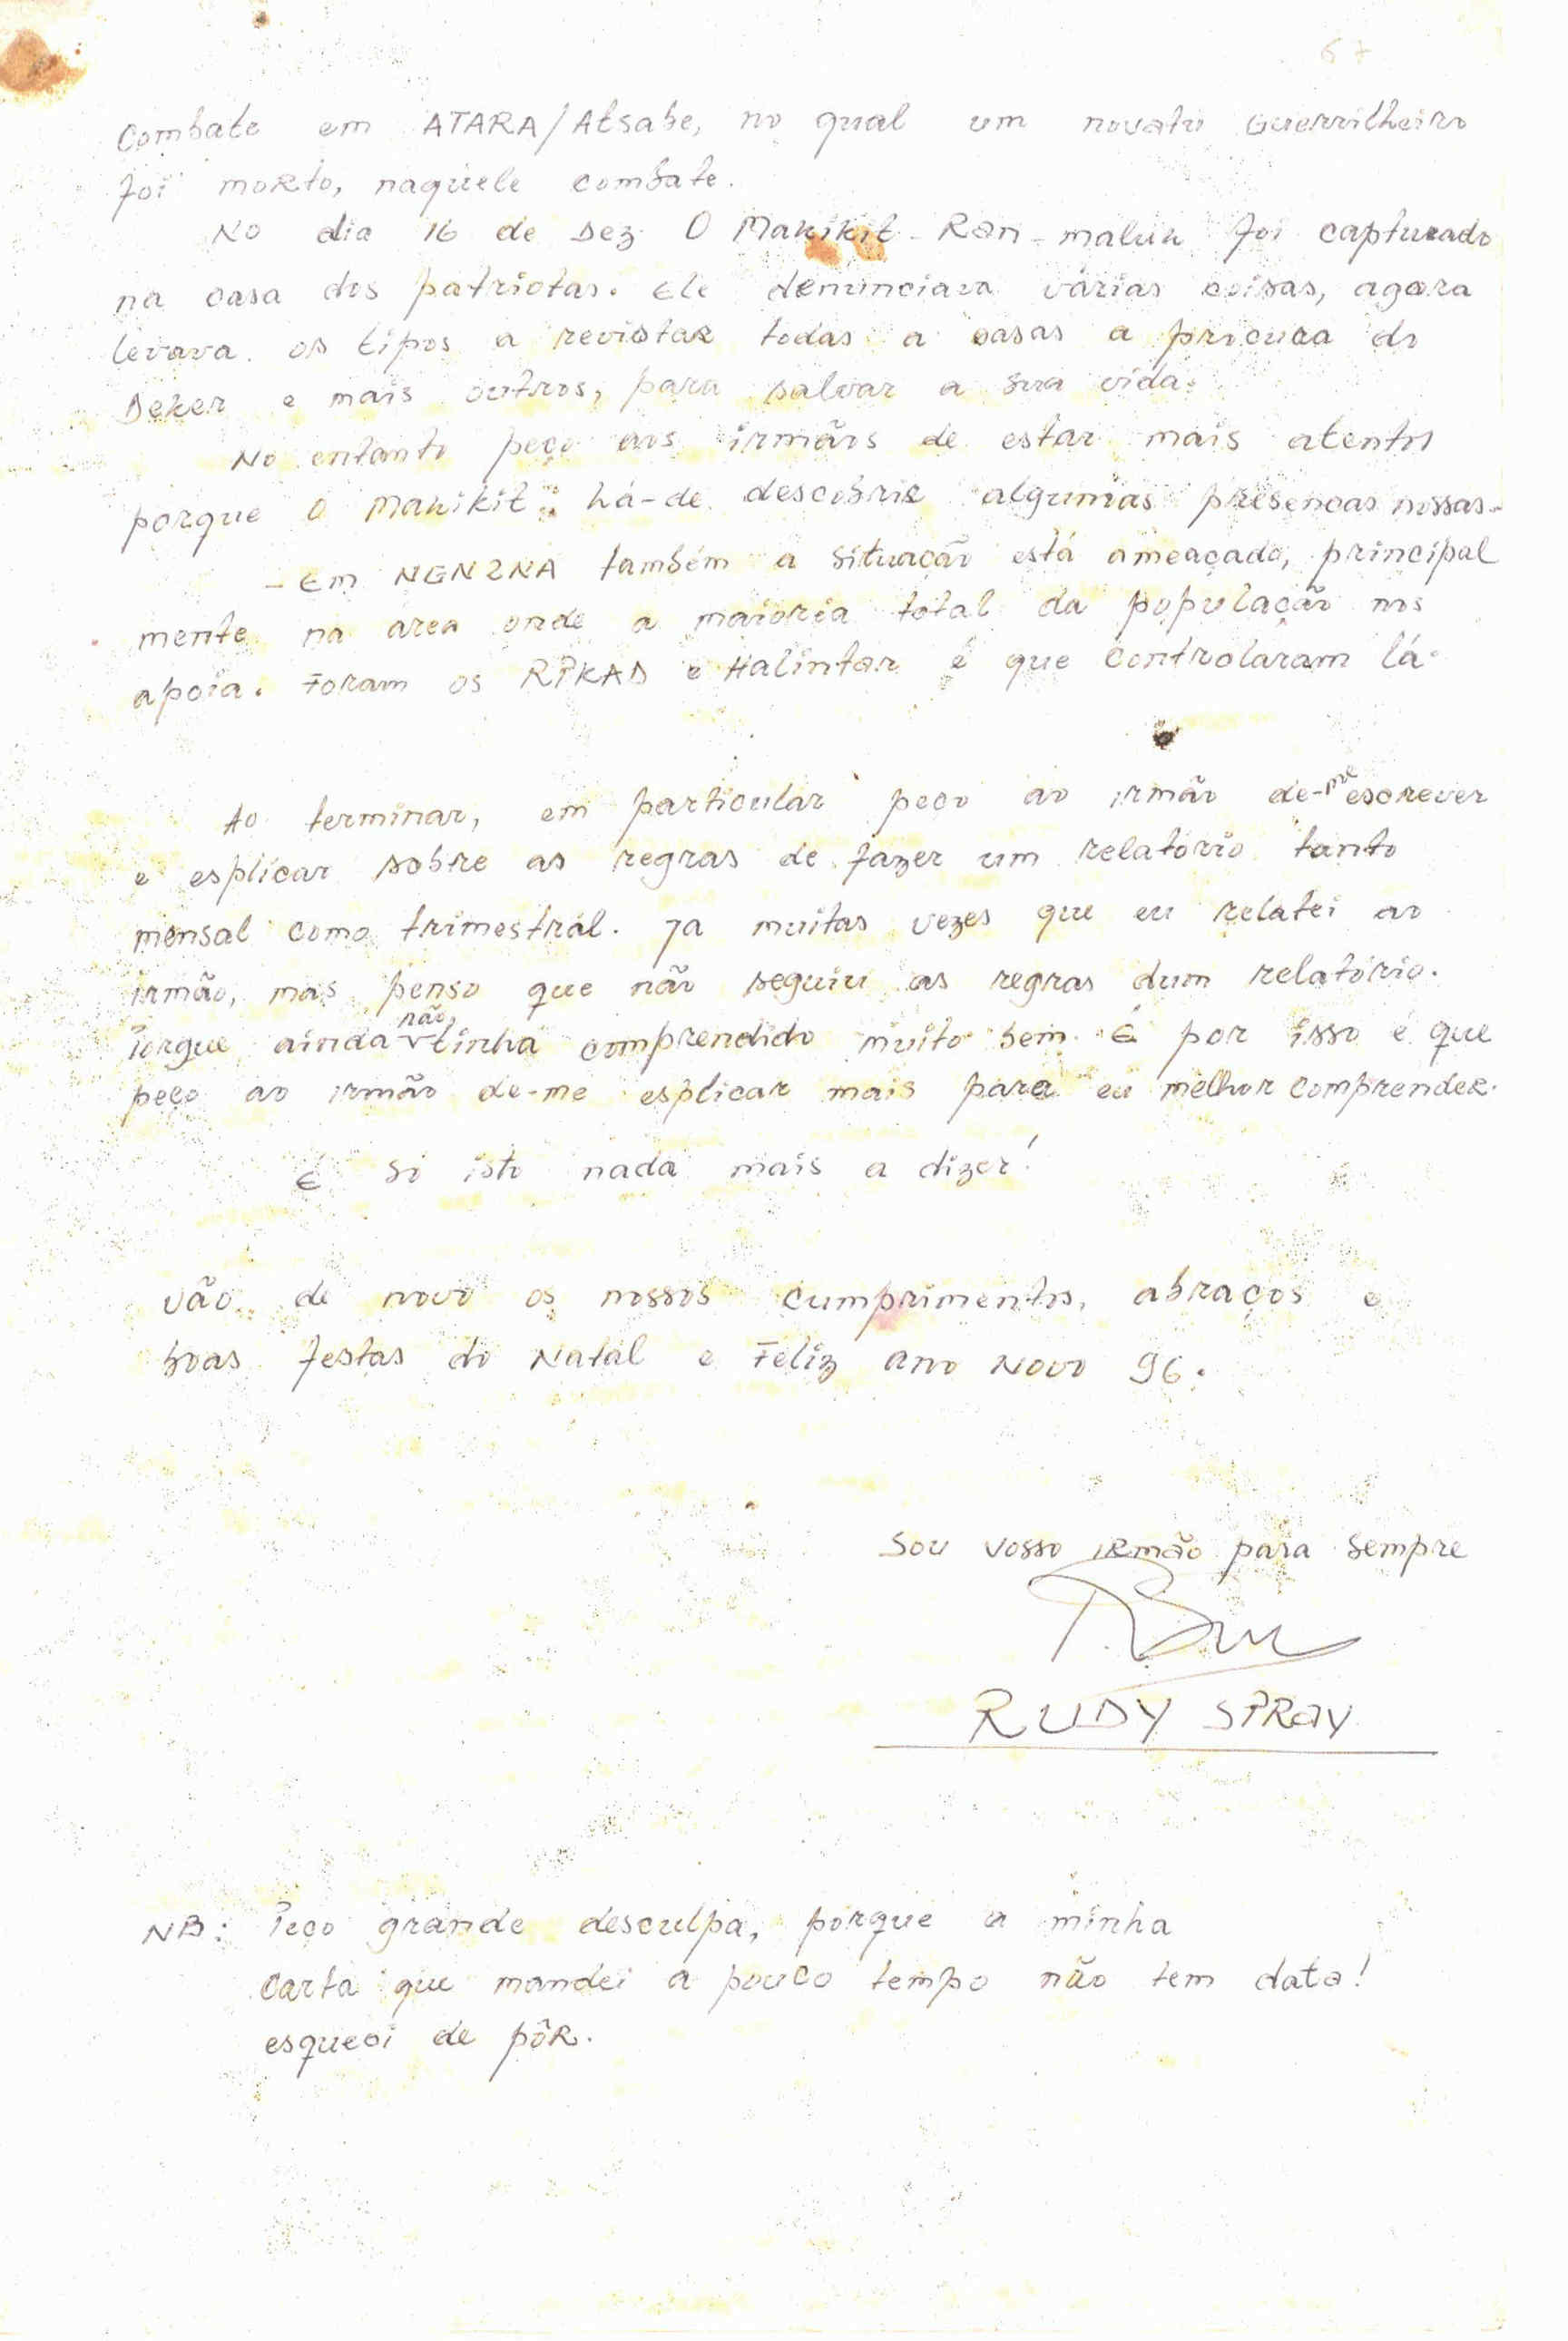 67
Combate em ATARA/Atsabe, no qual um novato Guerrilheiro
foi morto, naquele combate.
No dia 16 de Dez O Makikit - Ran - maluk foi capturado
na casa dos patriotas. Ele denunciava várias coisas, agora
levava os tipos a revistar todas a casas a procura do
Deker e mais outros, para salvar a sua vida.
No entanto peço aos irmãos de estar mais atentos
porque o Makikit há-de descobrir algumas presencas nossas.
- Em NGN2NA também a situação está ameaçado, principal
mente na área onde a maioria total da população nos
apoia. Foram os RPKAD e Halintar é que controlaram lá.
Ao terminar, em particular peço ao irmão de-me escrever
e esplicar sobre as regras de fazer um relatório tanto
mensal como trimestrál. Ja muitas vezes que eu relatei ao
irmão, mas penso que não seguiu as regras dum relatório.
Porque ainda não tinha comprendido muito bem. É por isso é que
peço ao irmão de-me esplicar mais para eu melhor comprender.
É só isto nada mais a dizer!
Vão de novo os nossos cumprimentos, abraços e
boas festas do Natál e Feliz ano Novo 96.
Sou vosso irmão para sempre
RUDY SPRAY
NB: Peço grande desculpa, porque a minha
carta que mandei a pouco tempo não tem data!
esqueci de pôr.